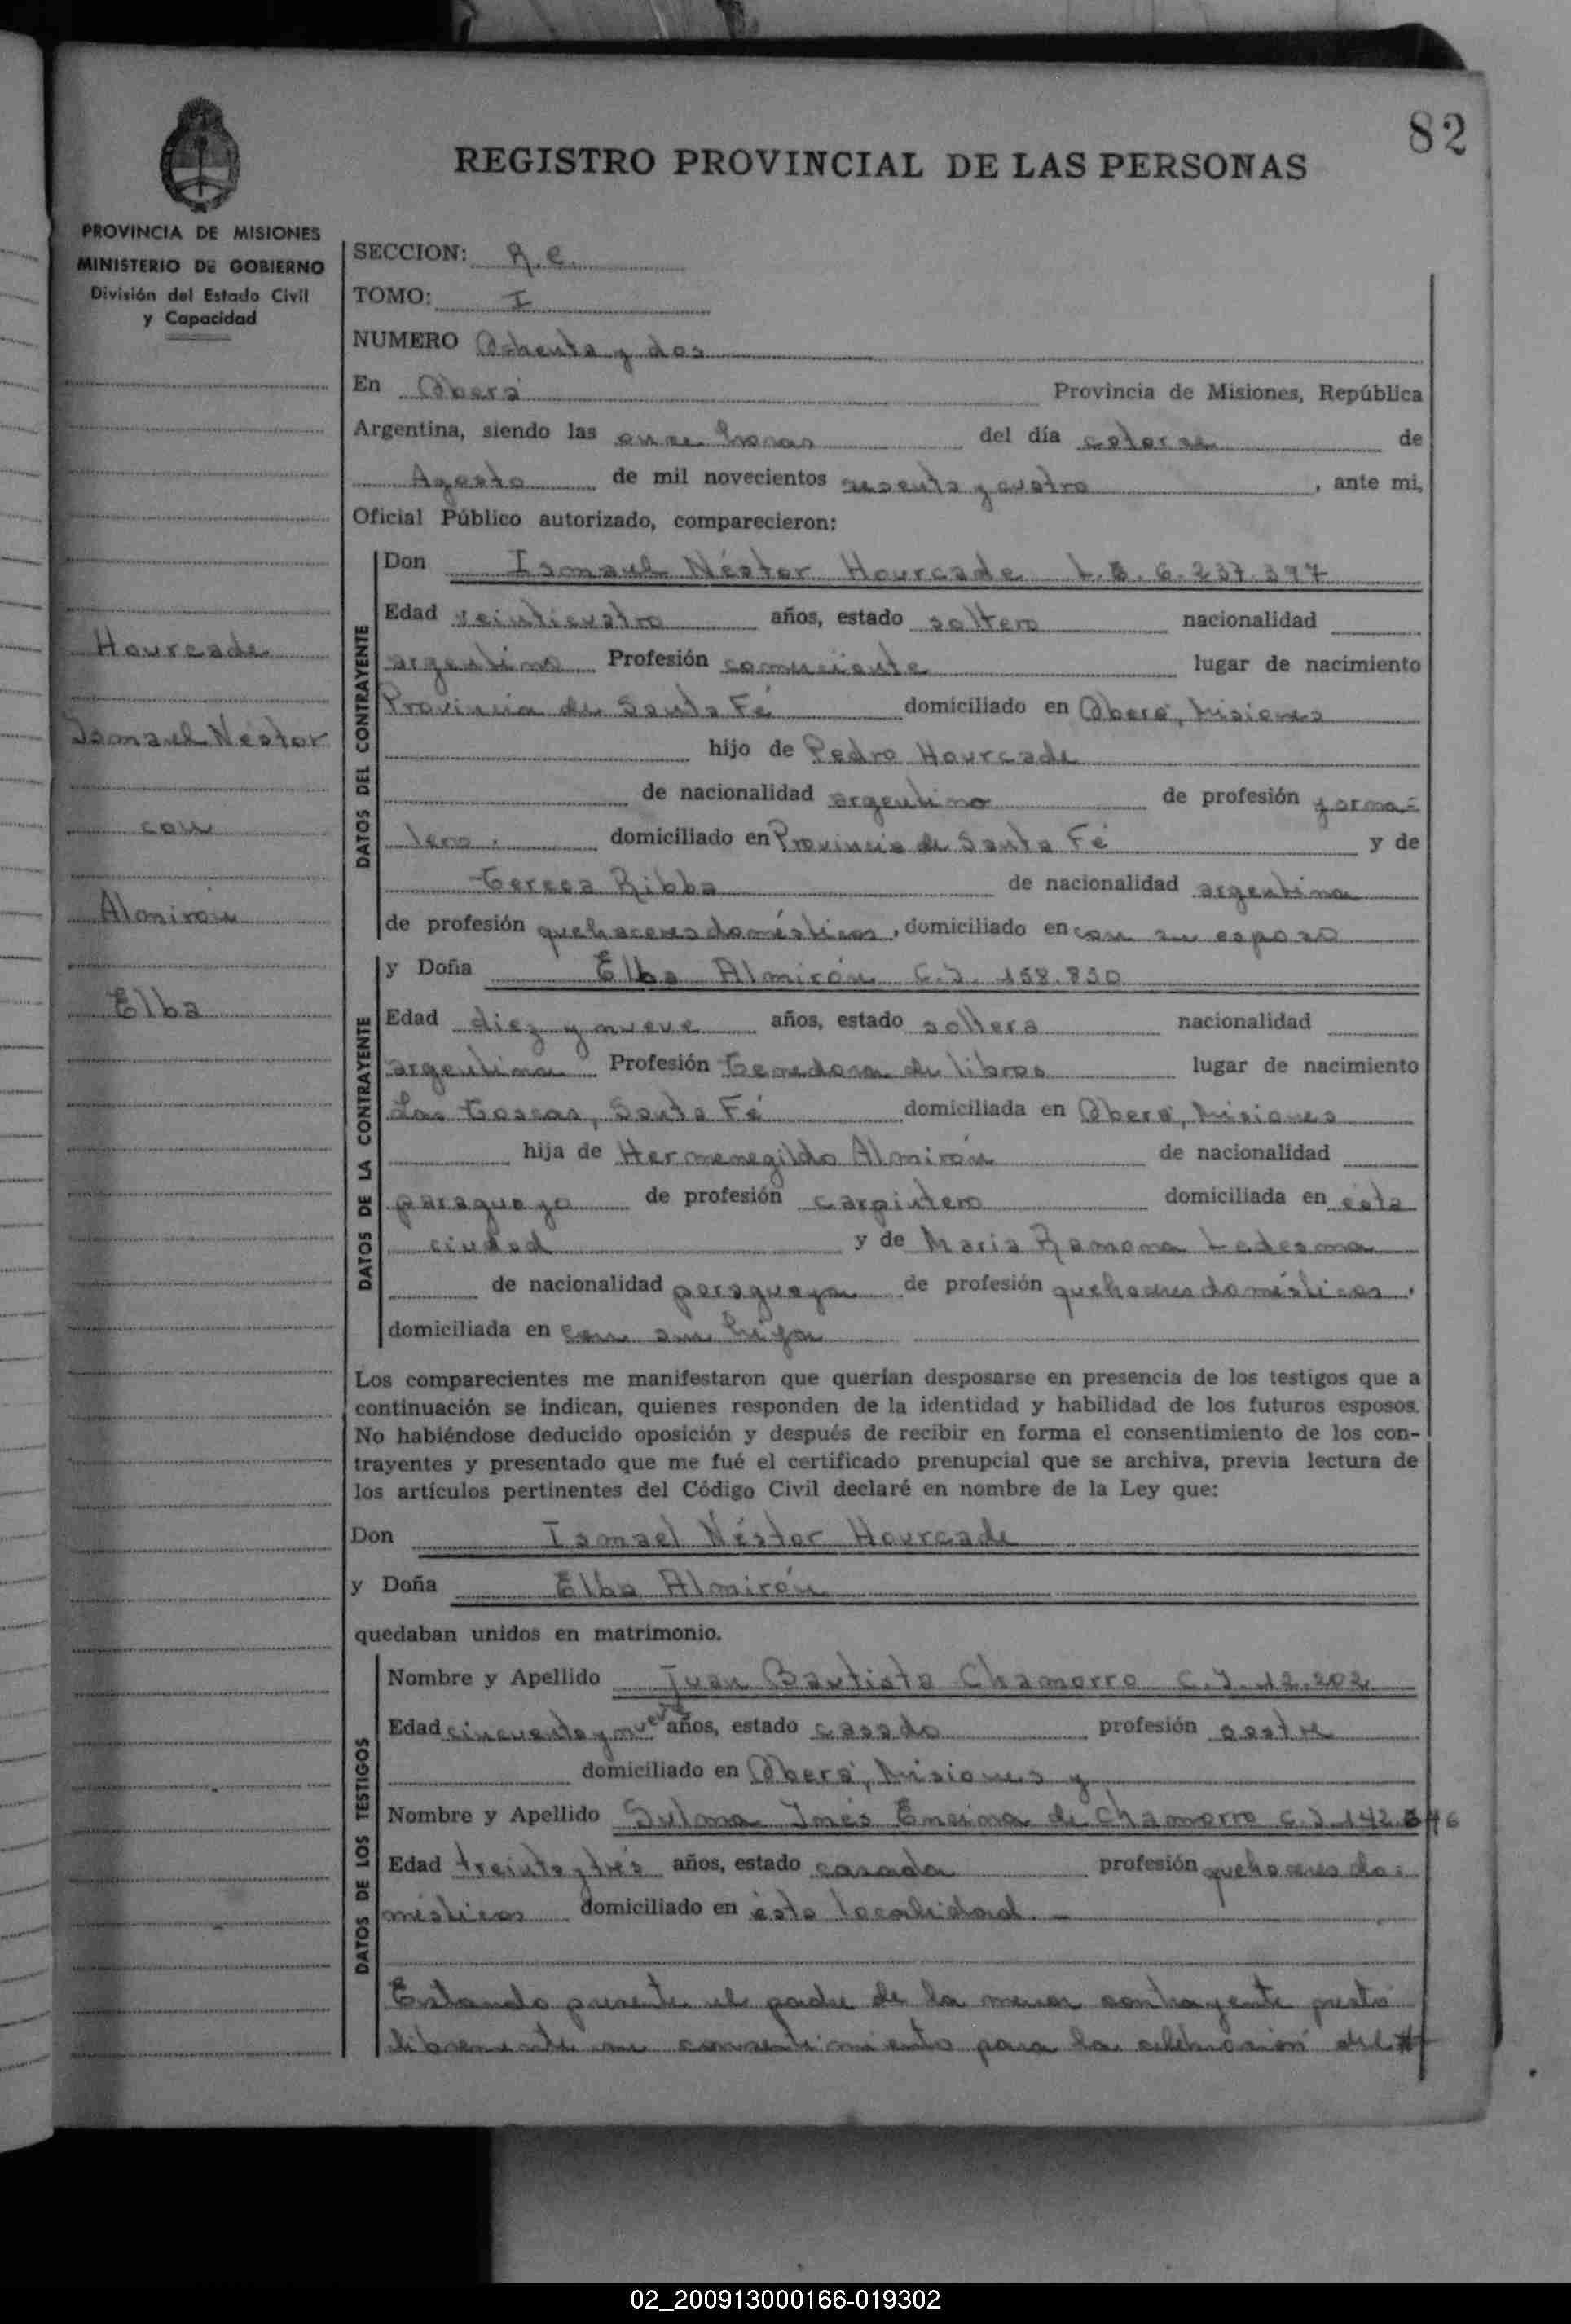 82
REGISTRO PROVINCIAL DE LAS PERSONAS
PROVINCIA DE MISIONES
MINISTERIO DE GOBIERNO
División del Estado Civil
y Capacidad
Hourcade
Ismael Néstor
con
Almirón
Elba
SECCION: R.C.
TOMO: I
NUMERO Ochenta y dos
En Oberá Provincia de Misiones, República
Argentina, siendo las once horas del día catorce de
Agosto de mil novecientos sesenta y cuatro, ante mi,
Oficial Público autorizado, comparecieron:
DATOS DEL CONTRAYENTE
Don Ismael Néstor Hourcade L.E. 6.237.397
Edad veinticuatro años, estado soltero nacionalidad
argentino Profesión comerciante lugar de nacimiento
Provincia de Santa Fé domiciliado en Oberá, Misiones
hijo de Pedro Hourcade
de nacionalidad argentino de profesión jorna=
lero. domiciliado en Provincia de Santa Fé y de
Teresa Ribba de nacionalidad argentina
de profesión quehaceres domésticos, domiciliado en con su esposo
DATOS DE LA CONTRAYENTE
y Doña Elba Almirón C.I. 158.830
Edad diez y nueve años, estado soltera nacionalidad
argentina Profesión Tenedora de libros lugar de nacimiento
Las Toscas, Santa Fé domiciliada en Oberá, Misiones
hija de Hermenegildo Almirón de nacionalidad
paraguayo de profesión carpintero domiciliada en ésta
ciudad y de Maria Ramona Ledesma
de nacionalidad paraguaya de profesión quehaceres domésticos,
domiciliada en con su hija
Los comparecientes me manifestaron que querían desposarse en presencia de los testigos que a
continuación se indican, quienes responden de la identidad y habilidad de los futuros esposos.
No habiéndose deducido oposición y después de recibir en forma el consentimiento de los con-
trayentes y presentado que me fué el certificado prenupcial que se archiva, previa lectura de
los artículos pertinentes del Código Civil declaré en nombre de la Ley que:
Don Ismael Néstor Hourcade
y Doña Elba Almirón
quedaban unidos en matrimonio.
DATOS DE LOS TESTIGOS
Nombre y Apellido Juan Bautista Chamorro C.I. 12.202
Edad cincuenta y nueve años, estado casado profesión sastre
domiciliado en Oberá, Misiones y
Nombre y Apellido Sulma Inés Encina de Chamorro C.I.
Edad treinta y trés años, estado casada profesión quehaceres do=
mésticos domiciliado en ésta localidad. –
Estando presente el padre de la menor contrayente prestó
libremente su consentimiento para la celebración del #
02_200913000166-019302